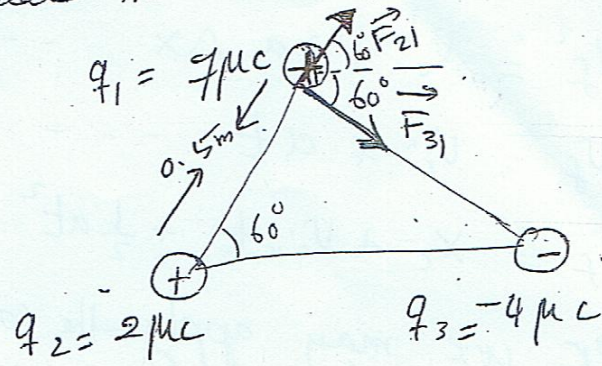 q₁ = 7μc
+
60° F⃗₂₁
60°
F⃗₃₁
0.5m
60°
+
-
q₂ = 2μc
q₃ = -4μc